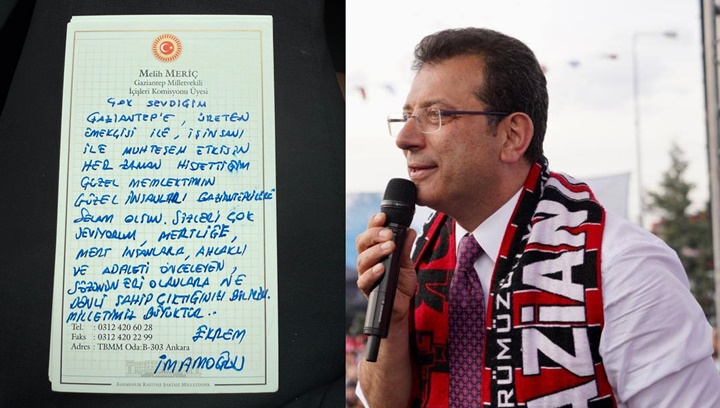 Melih MERİÇ
Gaziantep Milletvekili
İçişleri Komisyonu Üyesi
ÇOK SEVDİĞİM
GAZİANTEP'E, ÜRETEN
EMEKÇİSİ İLE, İŞİNSANI
İLE MUHTEŞEM ETKİSİN
HER ZAMAN HİSSETTİĞİM
GÜZEL MEMLEKTİMİN
GÜZEL İNSANLARI GAZİANTEPLİLERE
SELAM OLSUN. SİZLERİ ÇOK
SEVİYORUM, MERTLİĞE,
MERT İNSANLARA, AHLAKLI
VE ADALETİ ÖNCELEYEN,
SÖZÜNÜN ERİ OLANLARA NE
DENLİ SAHİP ÇIKTIĞINIZI BİLİRİM.
MİLLETİMİZ BÜYÜKTÜR..
Tel. : 0312 420 60 28
Faks : 0312 420 22 99
Adres : TBMM Oda:B-303 Ankara
EKREM
İMAMOĞLU
EGEMENLİK KAYITSIZ ŞARTSIZ MİLLETİNDİR
GAZİAN
RÜMÜZÜ